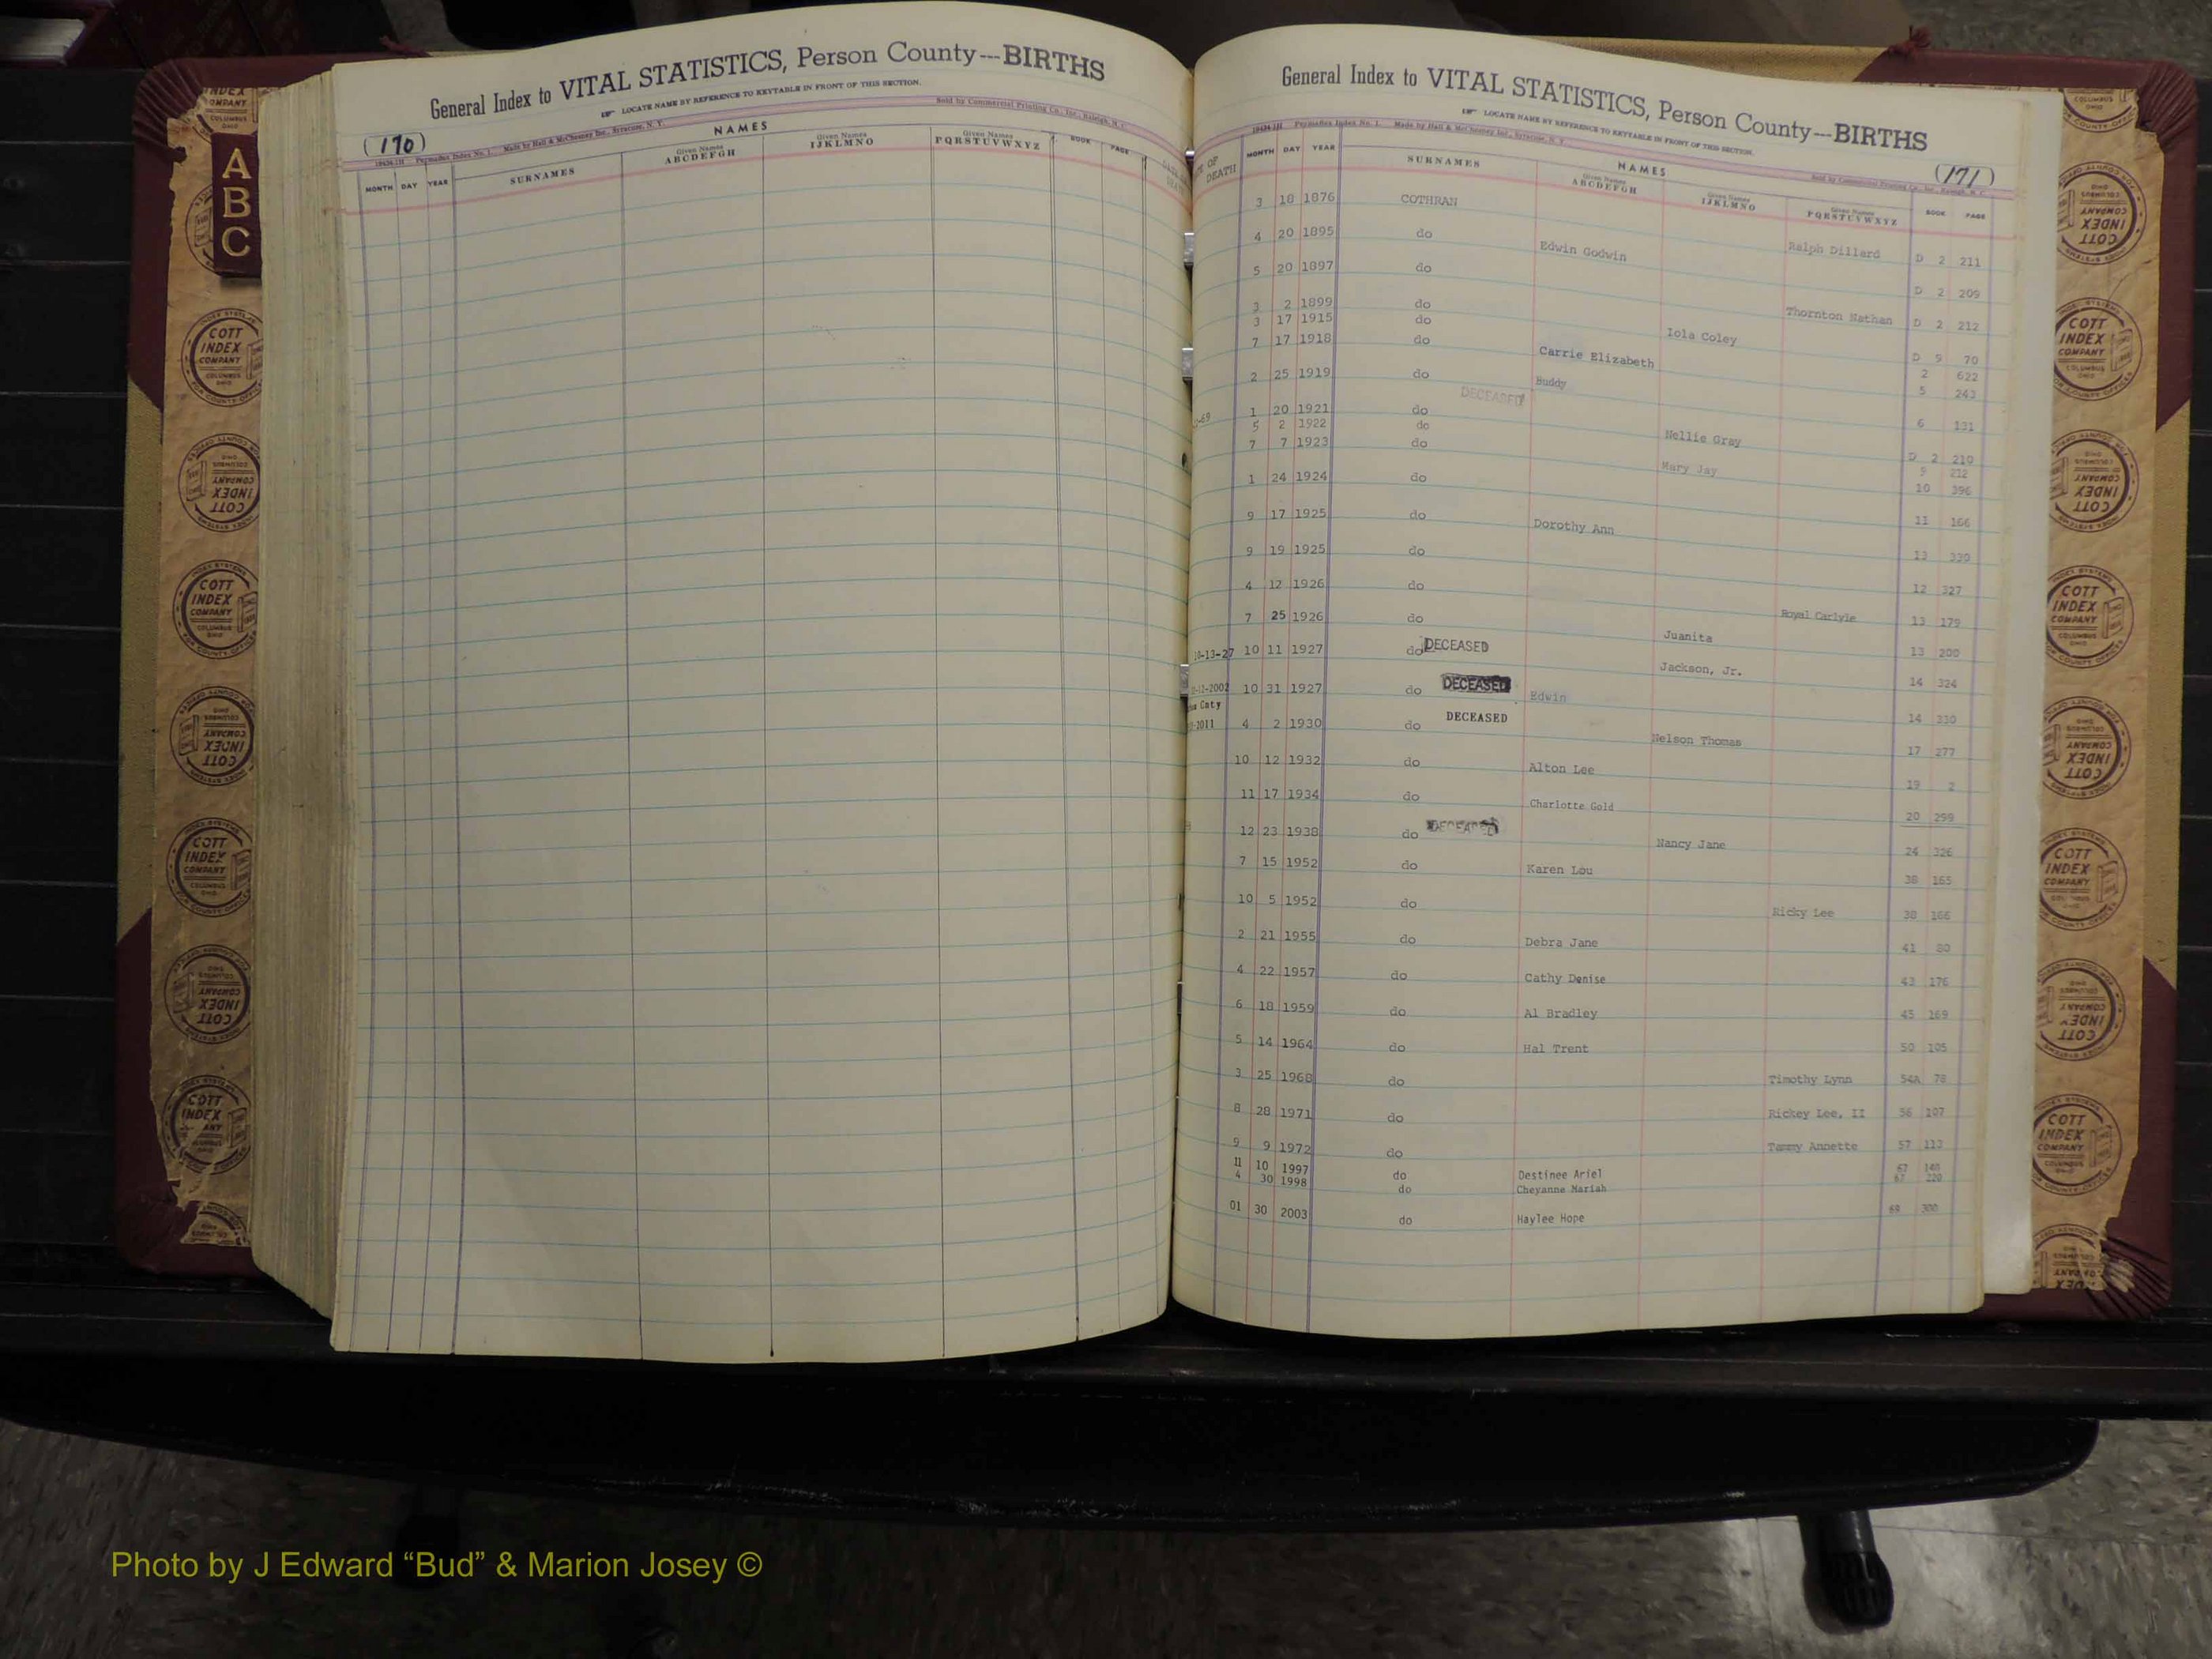 General Index to VITAL STATISTICS, Person County---BIRTHS
LOCATE NAME BY REFERENCE TO KEYTABLE IN FRONT OF THIS SECTION.
(170)
Made by Hall & McChesney Inc., Syracuse, N. Y.
Sold by Commercial Printing Co., Inc., Raleigh, N. C.
NAMES
MONTH DAY YEAR SURNAMES Given Names ABCDEFGH Given Names IJKLMNO Given Names PQRSTUVWXYZ BOOK PAGE
A
B
C
General Index to VITAL STATISTICS, Person County---BIRTHS
LOCATE NAME BY REFERENCE TO KEYTABLE IN FRONT OF THIS SECTION.
(171)
Made by Hall & McChesney Inc., Syracuse, N. Y.
Sold by Commercial Printing Co., Inc., Raleigh, N. C.
NAMES
DEATH MONTH DAY YEAR SURNAMES Given Names ABCDEFGH Given Names IJKLMNO Given Names PQRSTUVWXYZ BOOK PAGE
3 18 1876 COTHRAN Ralph Dillard D 2 211
4 20 1895 do Edwin Godwin D 2 209
5 20 1897 do Thornton Nathan D 2 212
3 2 1899 do Iola Coley D 9 70
3 17 1915 do Carrie Elizabeth 2 622
7 17 1918 do Buddy 5 243
2 25 1919 do DECEASED 6 131
1 20 1921 do Nellie Gray D 2 210
5 2 1922 do 9 212
7 7 1923 do Mary Jay 10 396
1 24 1924 do 11 166
9 17 1925 do Dorothy Ann 13 339
9 19 1925 do 12 327
4 12 1926 do Royal Carlyle 13 179
7 25 1926 do Juanita 13 200
10-13-27 10 11 1927 do DECEASED Jackson, Jr. 14 324
10 31 1927 do DECEASED Edwin 14 330
-2011 4 2 1930 do DECEASED Nelson Thomas 17 277
10 12 1932 do Alton Lee 19 2
11 17 1934 do Charlotte Gold 20 299
12 23 1938 do DECEASED Nancy Jane 24 326
7 15 1952 do Karen Lou 38 165
10 5 1952 do Ricky Lee 38 166
2 21 1955 do Debra Jane 41 80
4 22 1957 do Cathy Denise 43 176
6 18 1959 do Al Bradley 45 169
5 14 1964 do Hal Trent 50 105
3 25 1968 do Timothy Lynn 54A 78
8 28 1971 do Rickey Lee, II 56 107
9 9 1972 do Tammy Annette 57 113
11 10 1997 do Destinee Ariel 67 148
4 30 1998 do Cheyanne Mariah 67 220
01 30 2003 do Haylee Hope 69 300
COTT
INDEX
COMPANY
COLUMBUS
OHIO
Photo by J Edward “Bud” & Marion Josey ©